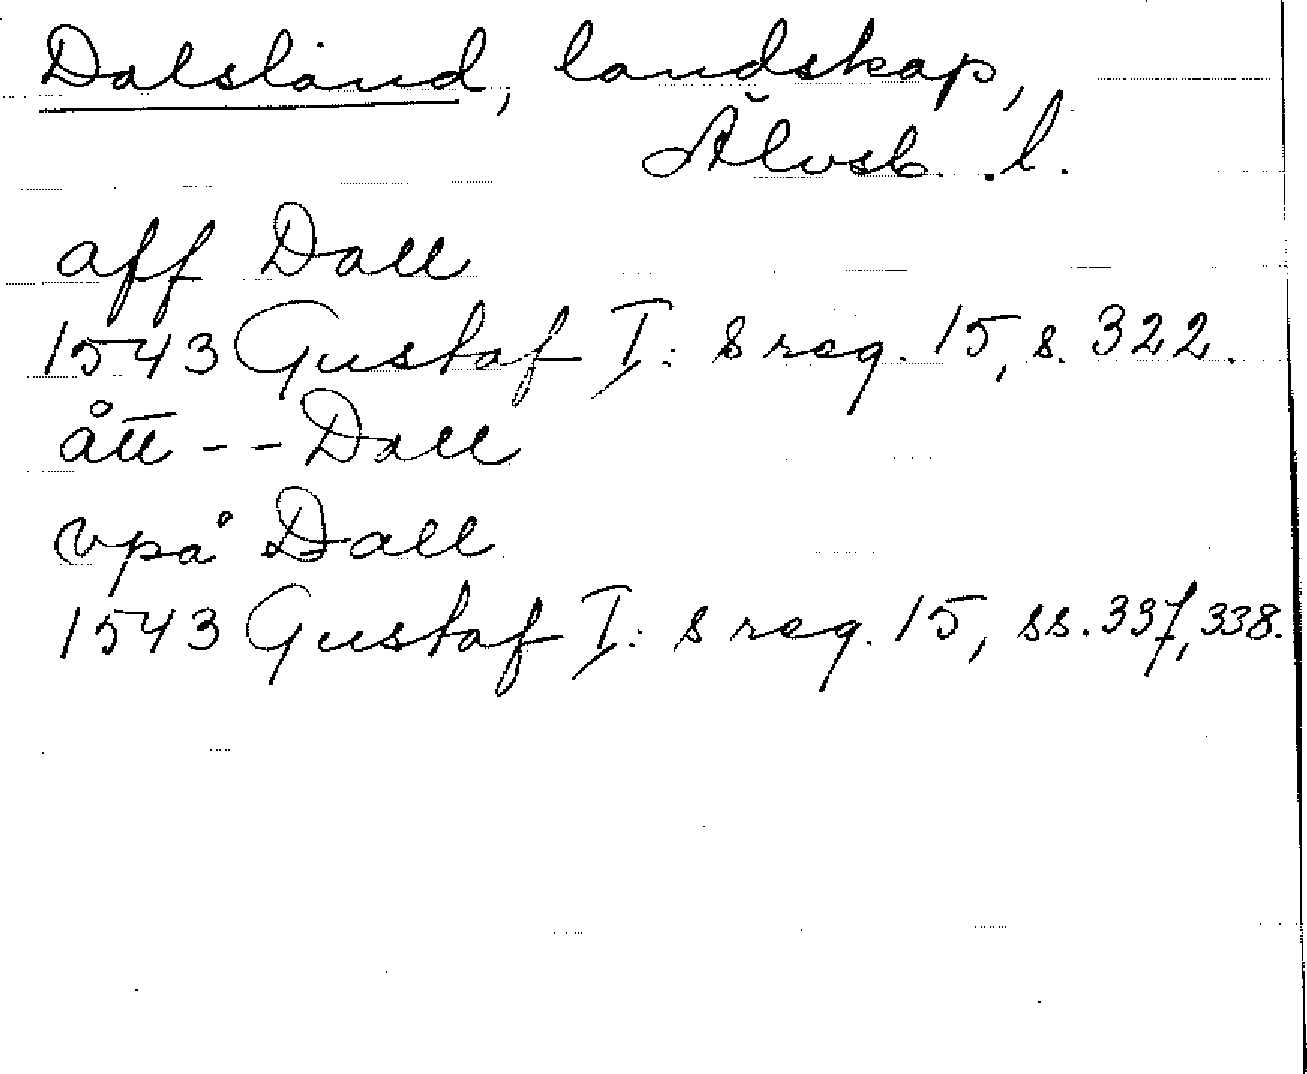 Dalsland, landskap,
Älvsb. l.
aff Dall
1543 Gustaf I: s reg. 15, s. 322.
ått -- Dall
vpå Dall
1543 Gustaf I: s reg. 15, ss. 337, 338.